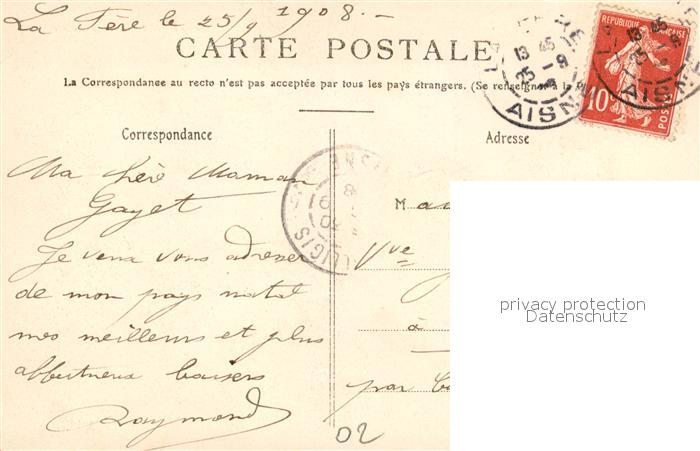 La Fère le 25/9 1908.-
CARTE POSTALE
La Correspondance au recto n'est pas acceptée par tous les pays étrangers. (Se renseigner à la
REPUBLIQUE FRANÇAISE
10
POSTES
13 45
25-9
AISNE
13 45
25
AISN
Correspondance
Adresse
Ma chère Maman
Gayet
Je veux vous adresser
de mon pays natal
mes meilleurs et plus
affectueux baisers
Raymond
M
Vve
à
par
02
privacy protection
Datenschutz